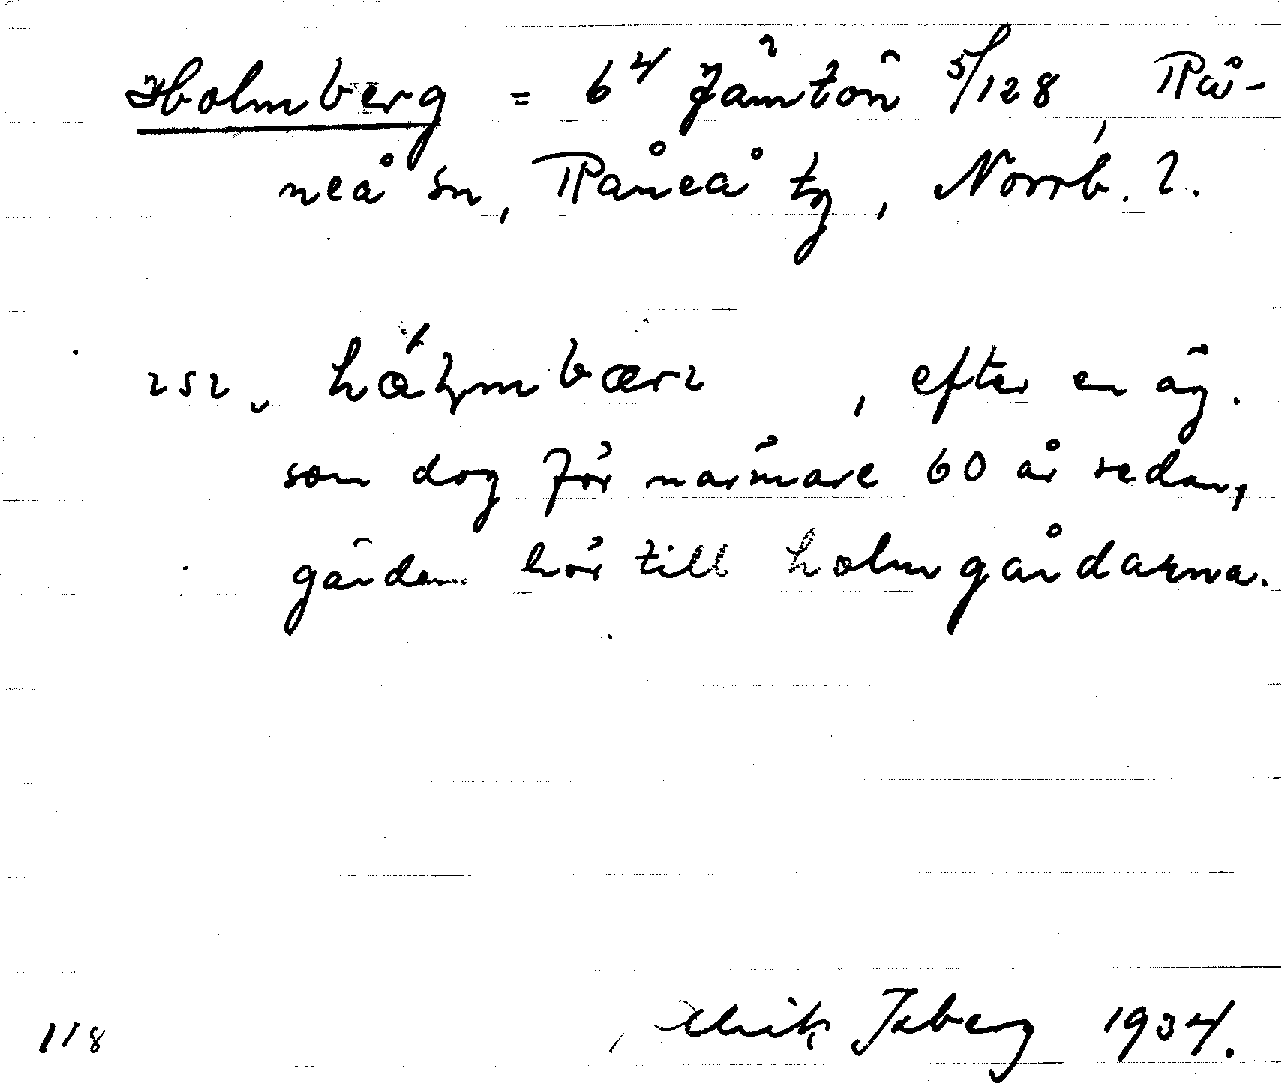 Holmberg = 6⁴ Jämtön 5/128, Rå-
neå sn, Råneå tg, Norrb. l.
efter en äg.
som dog för närmare 60 år sedan,
gården hör till holmgårdarna.
118 Isberg 1934.